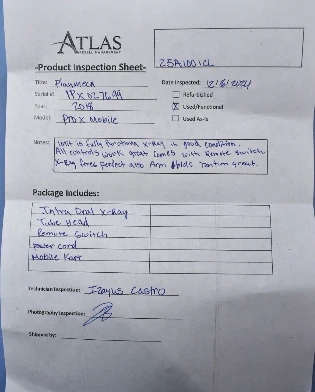 ATLAS
25A1001CL
-Product Inspection Sheet-
Title: Planmeca
Date Inspected: 12/6/2021
Serial #: IPX027699
Refurbished
Year: 2018
X Used/Functional
Model: ProX Mobile
Used As-Is
Notes: Unit is fully functional X-Ray in good condition.
All controls work great comes with Remote switch
X-Ray fires perfect also Arm Holds Position great.
Package Includes:
Intra Oral X-Ray
Tube Head
Remote Switch
power cord
Mobile Kart
Technician Inspection: Izayus Castro
Photography Inspection:
Shipped by: